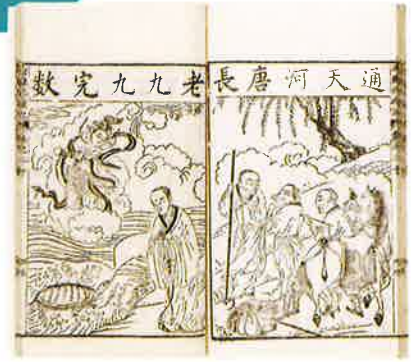 通天河唐長
老九九完数